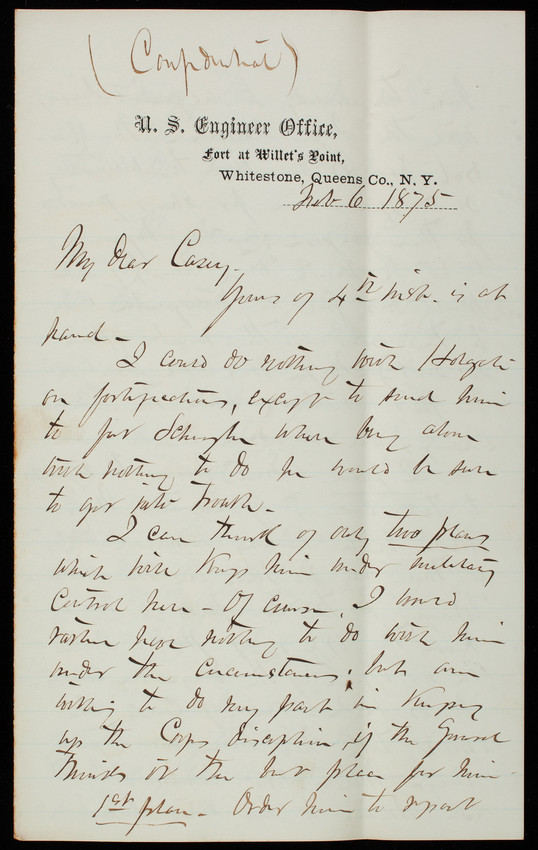 (Confidential)
U. S. Engineer Office,
Fort at Willet's Point,
Whitestone, Queens Co., N. Y.
Feb 6 1875
My dear Casey-
Yours of 4th inst. is at
hand-
I could do nothing with Holgate
on fortifications, except to send him
to for Schuyler where being alone
with nothing to do he would be sure
to get into trouble-
I can think of only two plans
which will keep him under military
control here - Of course, I would
rather have nothing to do with him
under the circumstances; but am
willing to do my part in keeping
up the Corps discipline, if the General
thinks it the best place for him-
1st plan- Order him to report